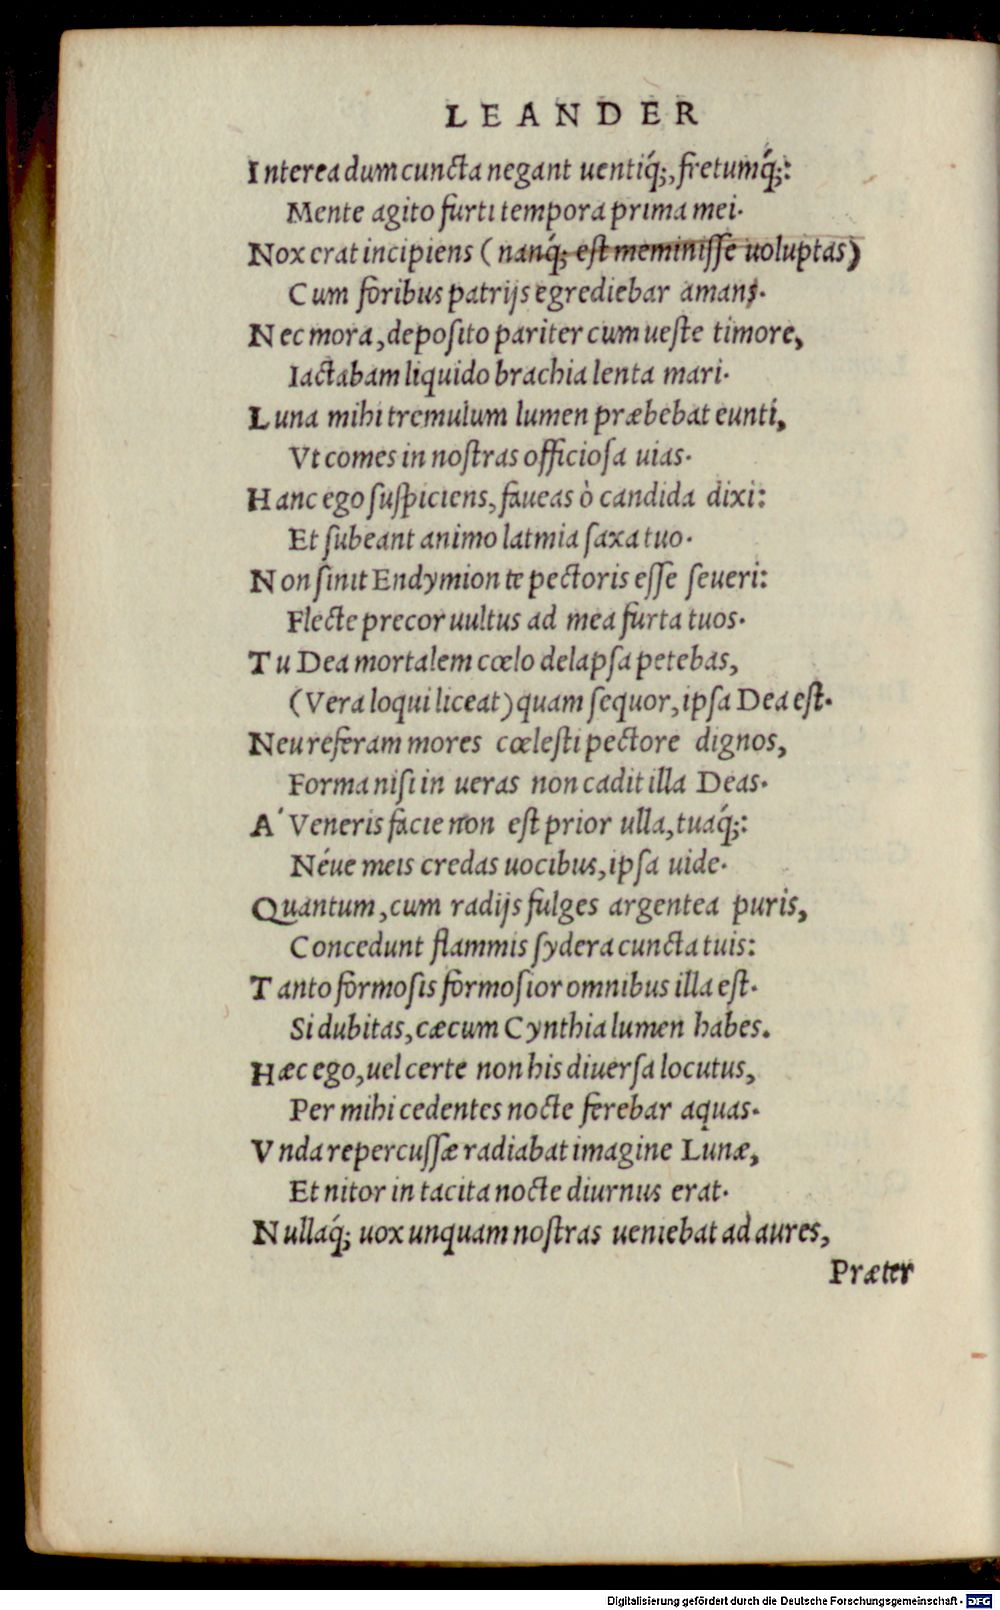 LEANDER
Interea dum cuncta negant uentiq́;, fretumq́;:
Mente agito furti tempora prima mei.
Nox erat incipiens (nanq́; est meminisse uoluptas)
Cum foribus patrijs egrediebar amans.
Nec mora, deposito pariter cum ueste timore,
Iactabam liquido brachia lenta mari.
Luna mihi tremulum lumen præbebat eunti,
Vt comes in nostras officiosa uias.
Hanc ego suspiciens, faueas ò candida dixi:
Et subeant animo latmia saxa tuo.
Non sinit Endymion te pectoris esse seueri:
Flecte precor uultus ad mea furta tuos.
Tu Dea mortalem cœlo delapsa petebas,
(Vera loqui liceat) quam sequor, ipsa Dea est.
Neu referam mores cœlesti pectore dignos,
Forma nisi in ueras non cadit illa Deas.
A' Veneris facie non est prior ulla, tuaq́;:
Néue meis credas uocibus, ipsa uide.
Quantum, cum radijs fulges argentea puris,
Concedunt flammis sydera cuncta tuis:
Tanto formosis formosior omnibus illa est.
Si dubitas, cæcum Cynthia lumen habes.
Hæc ego, uel certe non his diuersa locutus,
Per mihi cedentes nocte ferebar aquas.
Vnda repercussæ radiabat imagine Lunæ,
Et nitor in tacita nocte diurnus erat.
Nullaq́; uox unquam nostras ueniebat ad aures,
Præter
Digitalisierung gefördert durch die Deutsche Forschungsgemeinschaft - DFG